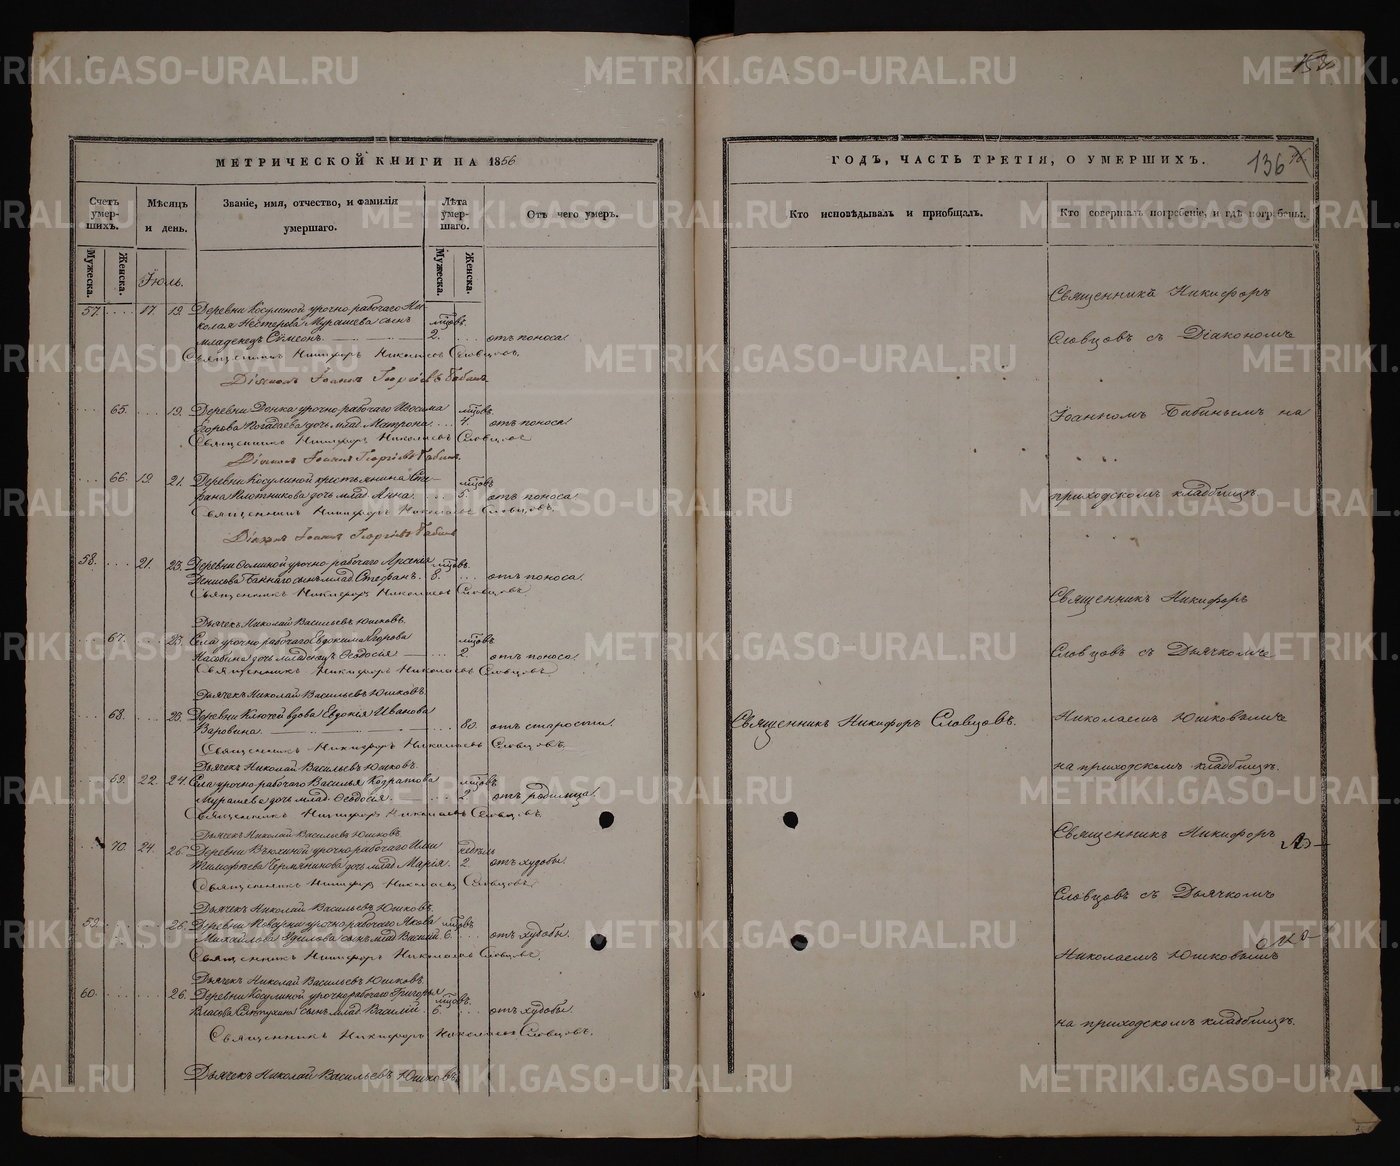 МЕТРИЧЕСКОЙ КНИГИ НА 1856
Счетъ умер-шихъ.
Мужеска.
Женска.
Мѣсяцъ и день.
Званіе, имя, отчество, и фамилія умершаго.
Лѣта умер-шаго.
Мужеска.
Женска.
Отъ чего умеръ.
Іюль.
57. 17. 19. Деревни Косулиной урочно рабочаго Ни-
колая Нестерова Мурашева сынъ
младенецъ Сѵмеонъ. мцовъ 2. отъ поноса.
Священникъ Никифоръ Николаевъ Словцовъ.
Діаконъ Іоаннъ Георгіевъ Бабинъ
65. 19. Деревни урочно рабочаго
Егорова дочь млад. Матрона. мцовъ отъ поноса.
Священникъ Никифоръ Николаевъ Словцовъ
Діаконъ Іоаннъ Георгіевъ Бабинъ
66. 19. 21. Деревни Косулиной крестьянина Сте-
фана Плотникова дочь млад. Анна. мцовъ 5. отъ поноса.
Священникъ Никифоръ Николаевъ Словцовъ.
Діаконъ Іоаннъ Георгіевъ Бабинъ
58. 21. 23. Деревни урочно рабочаго Арсенія
Денисова сынъ млад. Стефанъ. мцовъ. 8. отъ поноса.
Священникъ Никифоръ Николаевъ Словцовъ
Дьячекъ Николай Васильевъ Юшковъ.
67. 23. Села урочно рабочаго Евдокима Егорова
дочь младенецъ Ѳеодосья мцовъ 2. отъ поноса.
Священникъ Никифоръ Николаевъ Словцовъ
Дьячекъ Николай Васильевъ Юшковъ.
68. 23. Деревни Ключей вдова Евдокія Иванова
Варовина. 80. отъ старости.
Священникъ Никифоръ Николаевъ Словцовъ.
Дьячекъ Николай Васильевъ Юшковъ.
69. 22. 24. Села урочно рабочаго Василья Кодратова
Мурашева дочь млад. Ѳеодосія. мцовъ 2. отъ родимца.
Священникъ Никифоръ Николаевъ Словцовъ.
Дьячекъ Николай Васильевъ Юшковъ.
70. 24. 26. Деревни урочно рабочаго
Тимофѣева дочь млад. Марія. недѣль 2. отъ худобы.
Священникъ Никифоръ Николаевъ Словцовъ.
Дьячекъ Николай Васильевъ Юшковъ.
59. 26. Деревни урочно рабочаго Якова
Михайлова сынъ млад. Василій мцовъ 6. отъ худобы.
Священникъ Никифоръ Николаевъ Словцовъ.
Дьячекъ Николай Васильевъ Юшковъ.
60. 26. Деревни Косулиной урочно рабочаго Григорья
Власова сынъ млад. Василій. мцовъ. 6. отъ худобы.
Священникъ Никифоръ Николаевъ Словцовъ.
Дьячекъ Николай Васильевъ Юшковъ.
ГОДЪ, ЧАСТЬ ТРЕТІЯ, О УМЕРШИХЪ.
136
Кто исповѣдывалъ и пріобщалъ.
Кто совершалъ погребеніе, и гдѣ погребены.
Священникъ Никифоръ
Словцовъ съ Діакономъ
Іоанномъ Бабинымъ на
приходскомъ кладбищѣ.
Священникъ Никифоръ
Словцовъ съ Дьячкомъ
Священникъ Никифоръ Словцовъ.
Николаемъ Юшковымъ
на приходскомъ кладбищѣ.
Священникъ Никифоръ
Словцовъ съ Дьячкомъ
Николаемъ Юшковымъ
на приходскомъ кладбищѣ.
METRIKI.GASO-URAL.RU